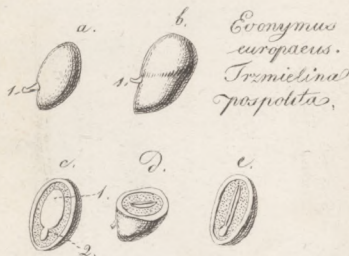 a.
b.
Evonymus
europaeus.
Trzmielina
pospolita.
1.
1.
c.
d.
e.
1.
2.